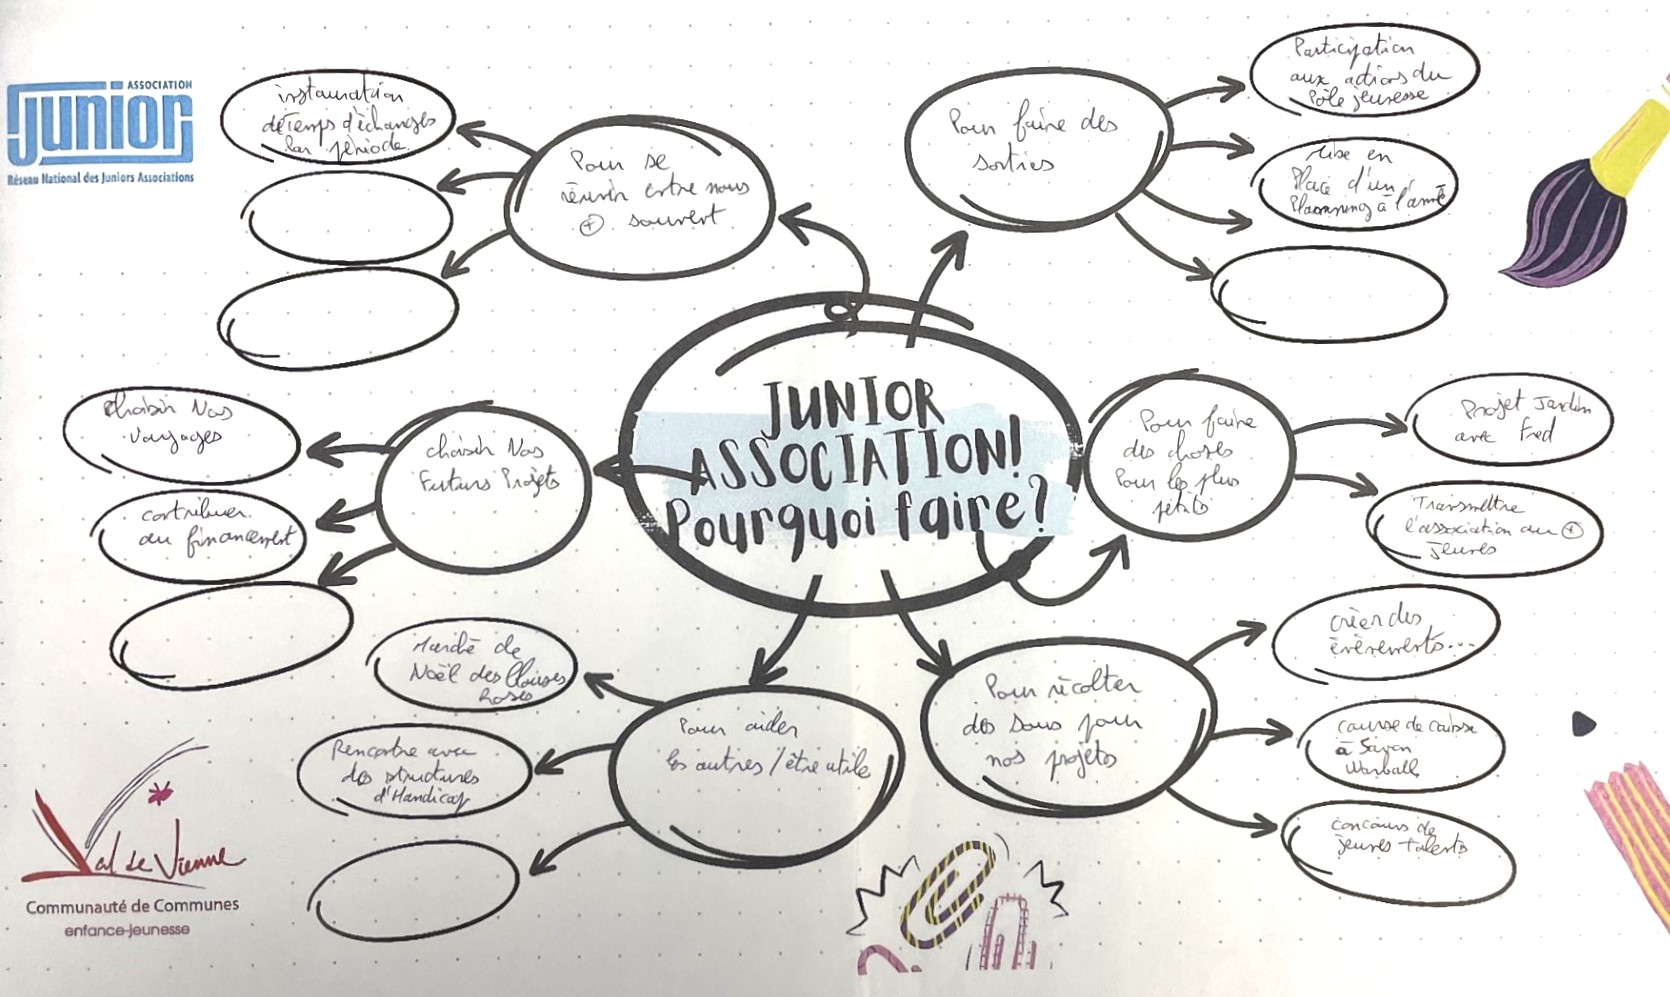 ASSOCIATION
Junior
Réseau National des Juniors Associations
instauration
de temps d'échanges
par période
Pour se
réunir entre nous
⊕ souvent
Pour faire des
sorties
Participation
aux actions du
Pôle jeunesse
Mise en
Place d'un
Planning à l'année
JUNIOR
ASSOCIATION!
Pourquoi faire?
choisir Nos
Futurs Projets
Choisir Nos
Voyages
contribuer
au financement
Pour faire
des choses
Pour les plus
petits
Projet Jardin
avec Fred
Transmettre
l'association au ⊕
Jeunes
Pour aider
les autres / être utile
Marché de
Noël des Blouses
Roses
Rencontre avec
des structures
d'Handicap
Pour récolter
des sous pour
nos projets
créer des
évènements...
course de caisse
à Savon
concours de
jeunes talents
Val de Vienne
Communauté de Communes
enfance-jeunesse